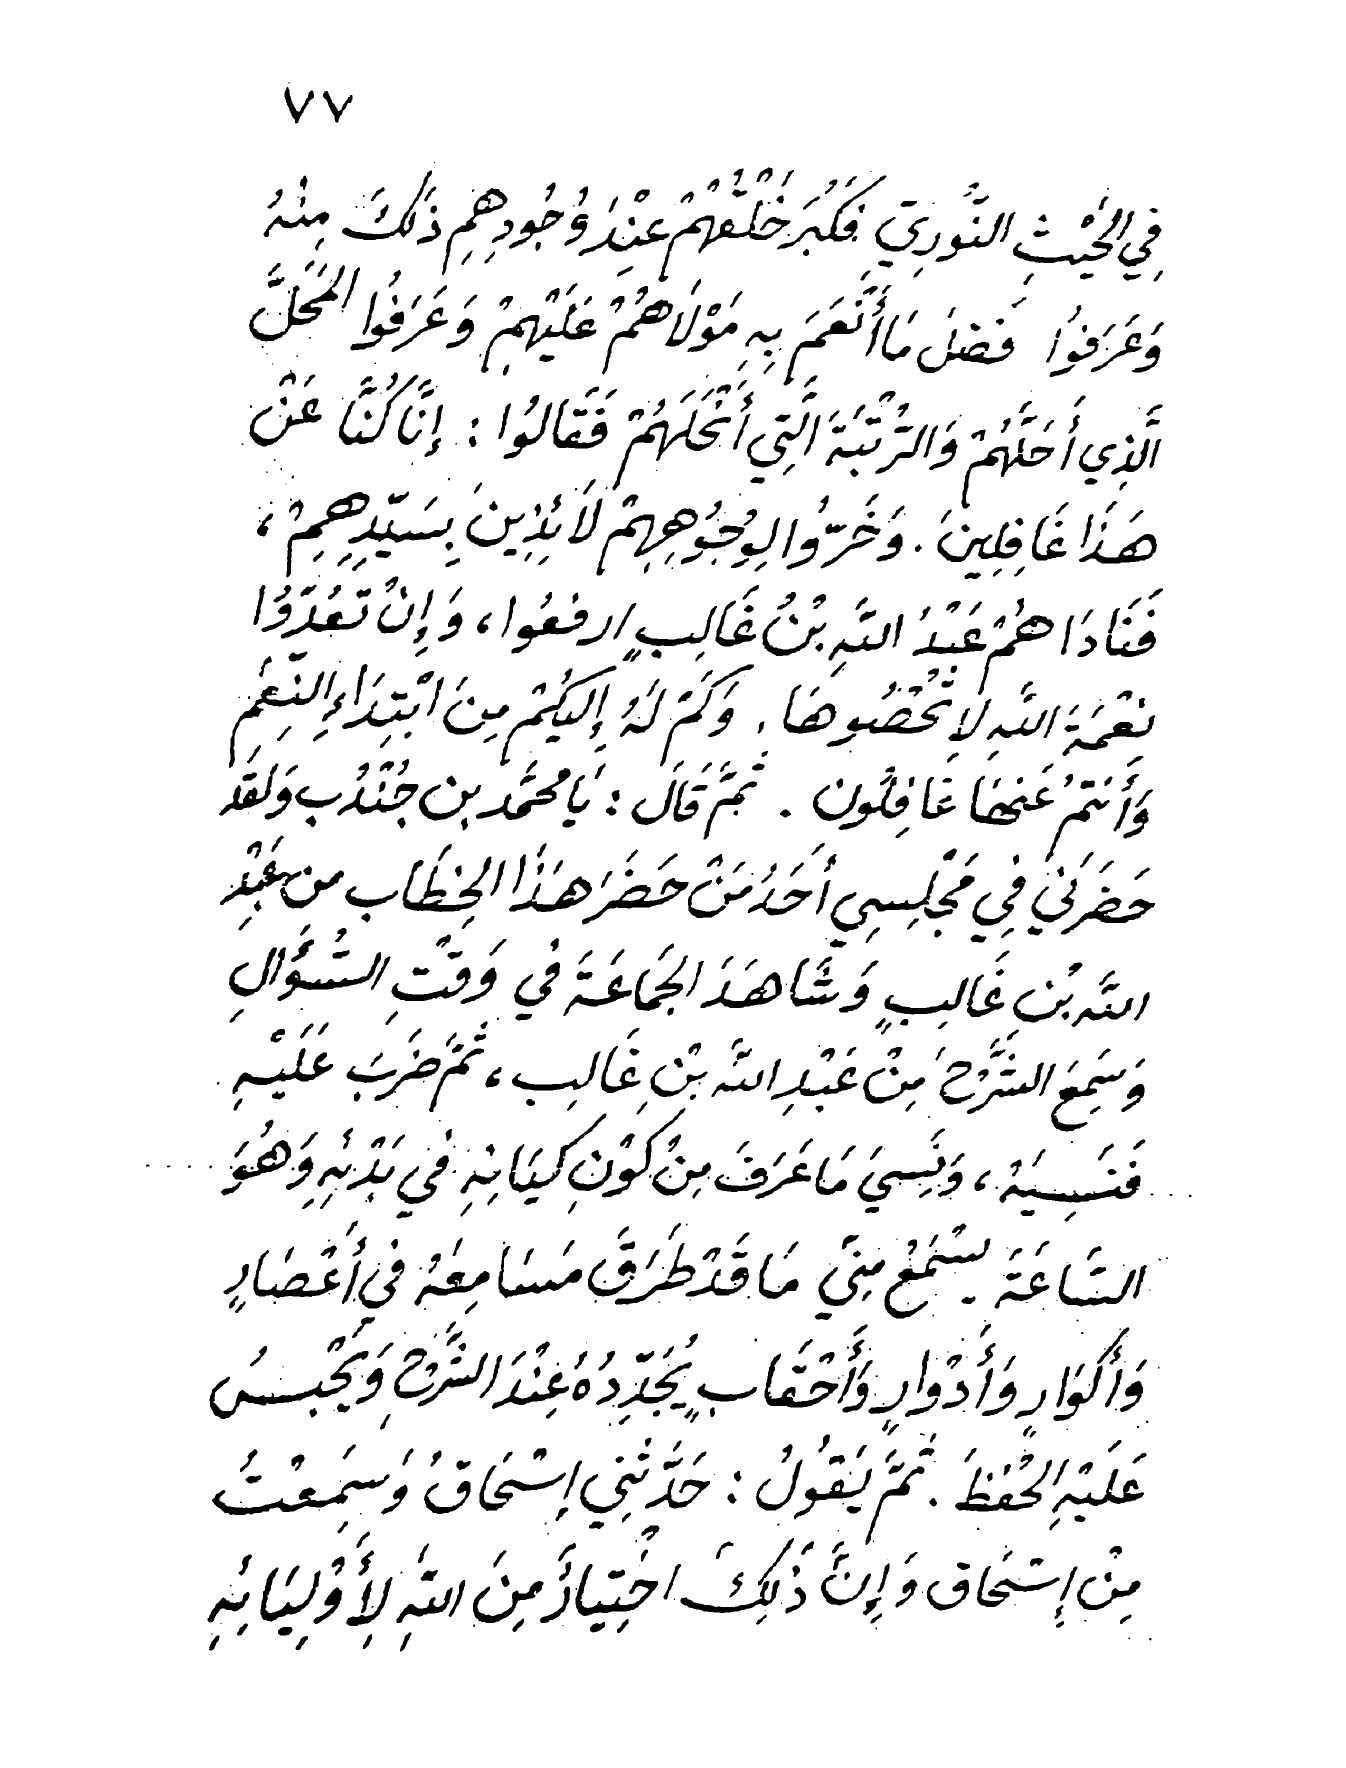 ٧٧
فِي الحَيْثِ النَّوُرِيِّ فَكَبُرَ خَلْقُهُمْ عِنْدَ وُجُودِهِمِ ذَلِكَ مِنْهُ
وَعَرَفوُا فَضلَ مَا أَنْعَمَ بِهِ مَوْلَاهُمْ عَلَيْهِمْ وَعَرَفُوا المَحَلَّ
الَّذِي أَحَلَّهُمْ وَالرُّتْبَةَ الَّتِي أَنْحَلَهُمْ فَقَالُوا : إِنَّا كُنَّا عَنْ
هَذَا غَافِلِينَ . وَخَرُّوا لِوُجُوهِهِمْ لَائِذِينَ بِسَيِّدِهِمْ ،
فَنَادَاهُمْ عَبْدُ اللَّهِ بْنُ غَالِبٍ ارفعُوا ، وَإِنْ تَعُدُّوا
نِعْمَةَ اللَّهِ لا تُحْصُوهَا . وَكَمْ لَهُ إِليكُمْ مِنَ ابْتِدَاءِ النِّعَمِ
وَأَنتمُ عَنهَا غَافِلُون . ثُمَّ قَالَ : يَا مُحَمَّد بِن جُنْدُبِ وَلَقَد
حَضَرَنيْ فِي مَجْلِسِي أَحَدُ مَنْ حَضَرَ هَذَا الخِطَاب من عَبْدِ
اللَّه بْنِ غَالِبٍ وَشَاهَدَ الجَمَاعَةَ فِي وَقْتِ السُّؤَالِ
وَسَمِعَ الشَّرْحَ مِنْ عَبْدِ اللَّه بْنِ غَالِب ، ثُمَّ ضَرَبَ عَلَيْهِ
فَنَسِيَهْ ، وَنَسِيَ مَا عَرَفَ مِنْ كَوْنِ كَيَانِهِ فِي بَدْئِهِ وَهُوَ
السَّاعَةَ يسْتَمِعْ مِنِّي مَا قَدْ طَرَقَ مَسَامِعَهُ فِي أَعْصَارٍ
وَأَكْوَارٍ وَأَدْوَارٍ وَأَحْقَابٍ يُجَدِّدُهُ عِنْدَ الشَّرْحِ وَيَحْبِسُ
عَلَيْهِ الحْفْظَ . ثُمَّ يَقوُلُ : حَدَّثَنِي إِسْحَاقُ وَسَمِعْتُ
مِنْ إِسْحَاق وَإِنَّ ذَلِكَ اخْتِيَارٌ مِنَ اللَّهِ لِأَوْلِيَائِهِ